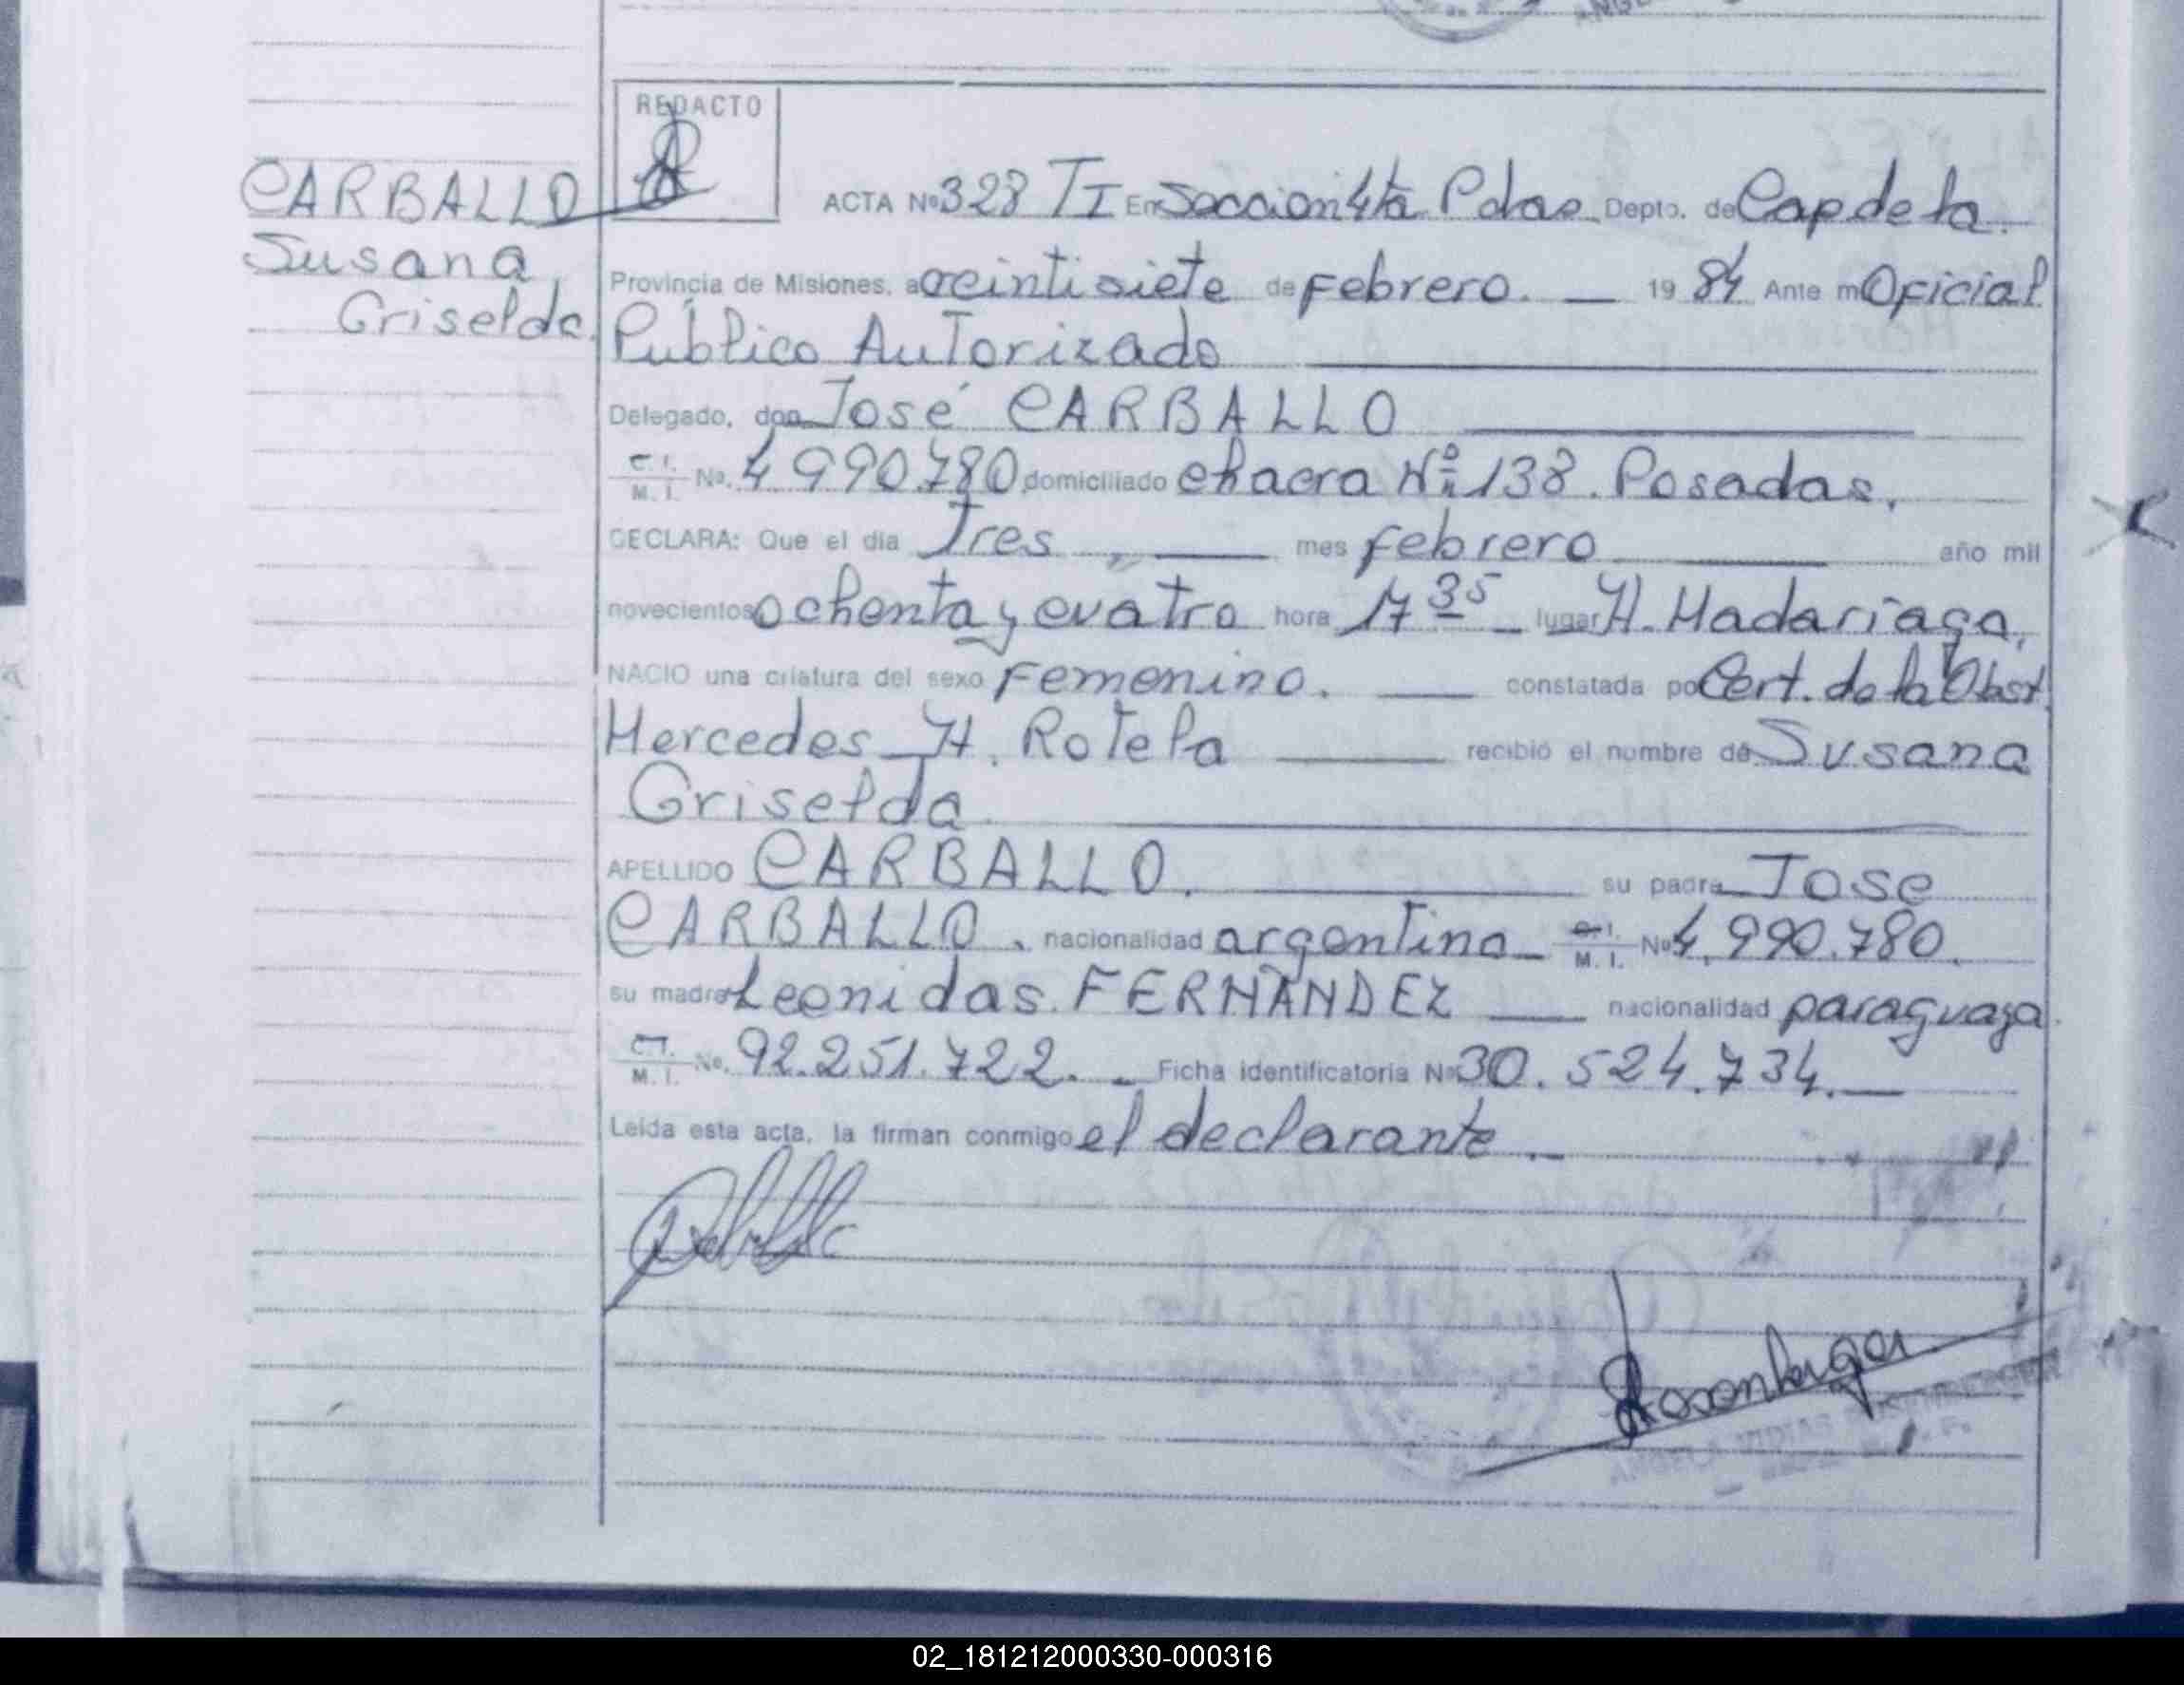 REDACTO
CARBALLO
Susana
Griselda.
ACTA Nº 328 TI En Sección 4ta Pdas. Depto. de Cap de la.
Provincia de Misiones, a veintisiete de Febrero. — 19 84 Ante mi Oficial
Público Autorizado
Delegado, don José CARBALLO
C. I. M. I. No. 4990.780 domiciliado chacra Nº 138. Posadas.
DECLARA: Que el día Tres mes febrero año mil
novecientos ochenta y cuatro hora 17 35 lugar H. Madariaga,
NACIO una criatura del sexo Femenino. — constatada por Cert. de la Obst.
Mercedes H. Rotela recibió el nombre de Susana
Griselda
APELLIDO CARBALLO. su padre Jose
CARBALLO. nacionalidad argentino C. I. M. I. Nº 4.990.780.
su madre Leonidas FERNÁNDEZ nacionalidad paraguaya.
C. I. M. I. No. 92.251.722. - Ficha identificatoria Nº 30.524.734. —
Leída esta acta, la firman conmigo el declarante.
Rosenberger
ANGELA ROSENBERGER
02_181212000330-000316